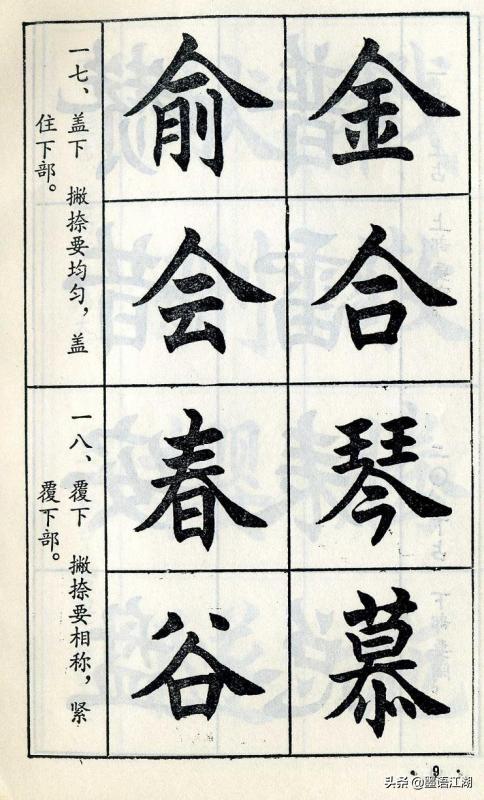 金合
俞会
一七、盖下 撇捺要均匀，盖
住下部。
琴慕
春谷
一八、覆下 撇捺要相称，紧
覆下部。
· 9 ·
头条 @墨语江湖